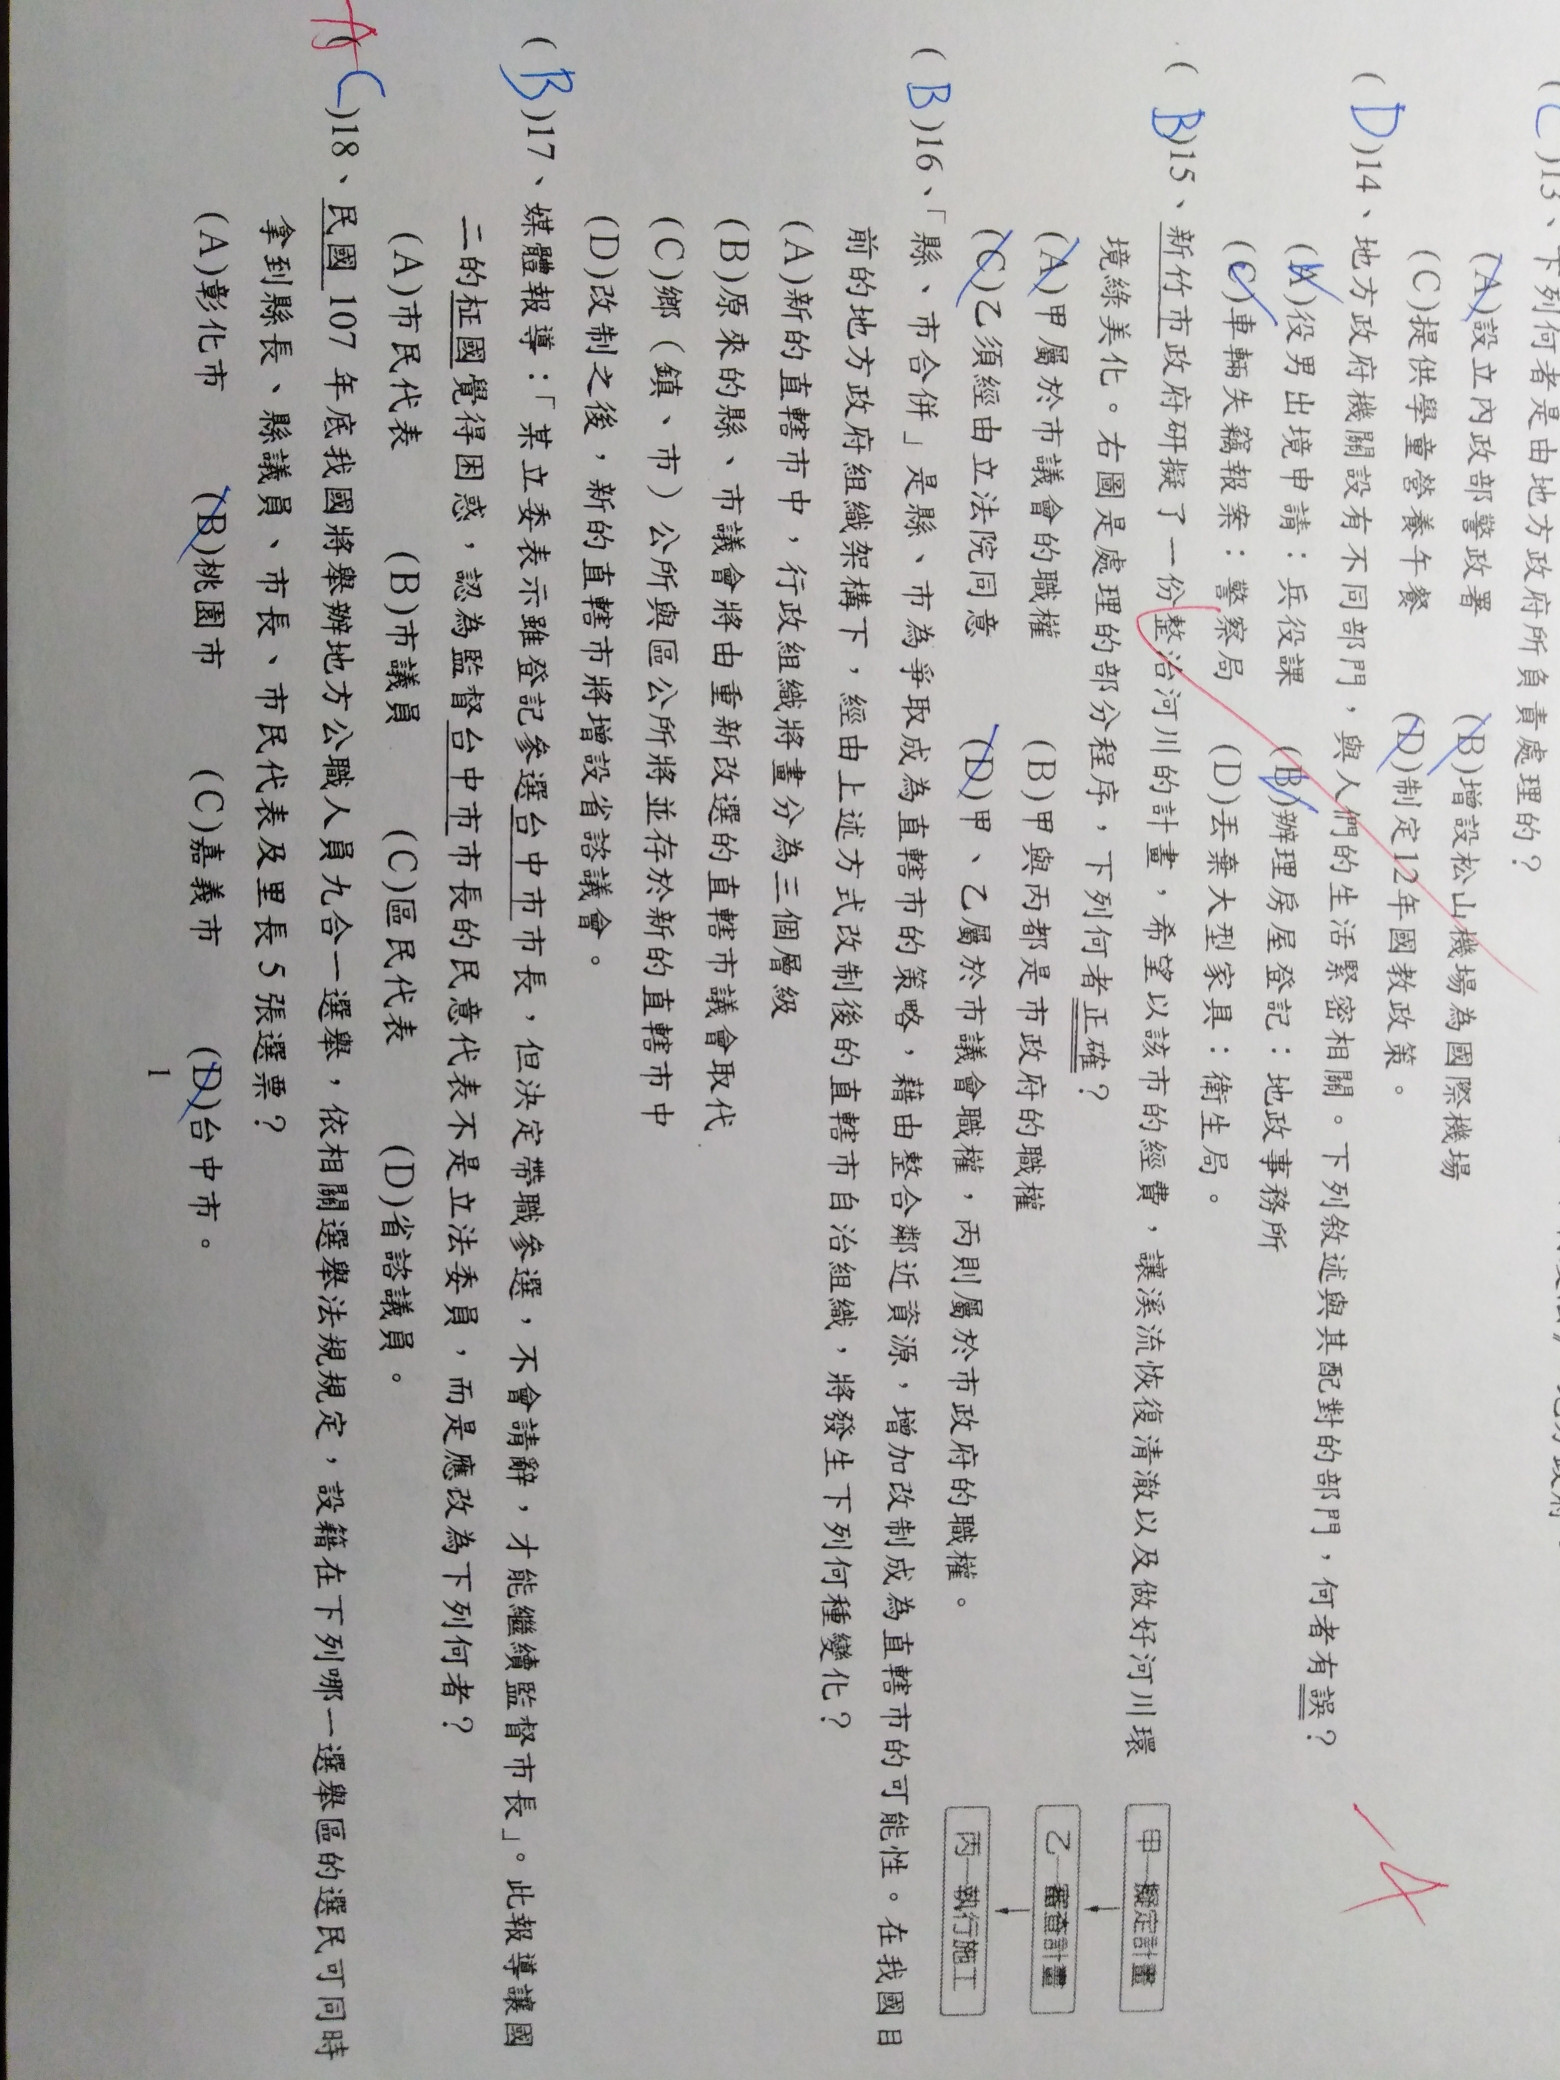 (C)13、下列何者是由地方政府所負責處理的？
(A)設立內政部警政署 (B)增設松山機場為國際機場
(C)提供學童營養午餐 (D)制定12年國教政策。
(D)14、地方政府機關設有不同部門，與人們的生活緊密相關。下列敘述與其配對的部門，何者有誤？
(A)役男出境申請：兵役課 (B)辦理房屋登記：地政事務所
(C)車輛失竊報案：警察局 (D)丟棄大型家具：衛生局。
-4
(B)15、新竹市政府研擬了一份整治河川的計畫，希望以該市的經費，讓溪流恢復清澈以及做好河川環
境綠美化。右圖是處理的部分程序，下列何者正確？
(A)甲屬於市議會的職權 (B)甲與丙都是市政府的職權
(C)乙須經由立法院同意 (D)甲、乙屬於市議會職權，丙則屬於市政府的職權。
甲—擬定計畫
乙—審查計畫
丙—執行施工
(B)16、「縣、市合併」是縣、市為爭取成為直轄市的策略，藉由整合鄰近資源，增加改制成為直轄市的可能性。在我國目
前的地方政府組織架構下，經由上述方式改制後的直轄市自治組織，將發生下列何種變化？
(A)新的直轄市中，行政組織將畫分為三個層級
(B)原來的縣、市議會將由重新改選的直轄市議會取代
(C)鄉（鎮、市）公所與區公所將並存於新的直轄市中
(D)改制之後，新的直轄市將增設省諮議會。
(B)17、媒體報導：「某立委表示雖登記參選台中市市長，但決定帶職參選，不會請辭，才能繼續監督市長」。此報導讓國
二的柾國覺得困惑，認為監督台中市市長的民意代表不是立法委員，而是應改為下列何者？
(A)市民代表 (B)市議員 (C)區民代表 (D)省諮議員。
A
(C)18、民國 107 年底我國將舉辦地方公職人員九合一選舉，依相關選舉法規規定，設籍在下列哪一選舉區的選民可同時
拿到縣長、縣議員、市長、市民代表及里長 5 張選票？
(A)彰化市 (B)桃園市 (C)嘉義市 (D)台中市。
1